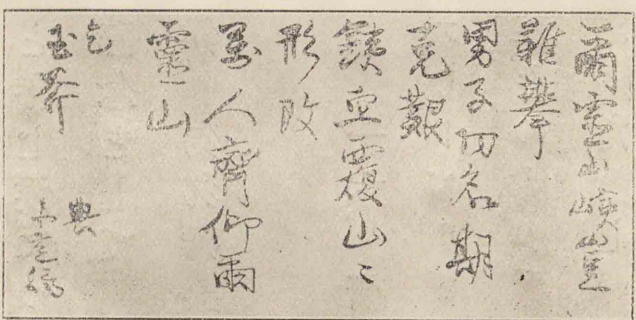 爾靈山嶮豈
難攀
男子功名期
克艱
鐵血覆山々
形改
萬人齊仰爾
靈山
乞
玉斧
典